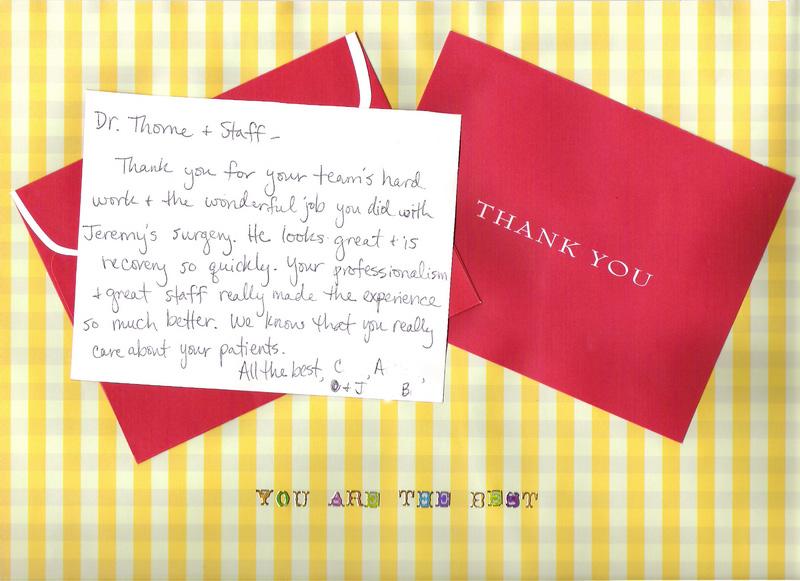 Dr. Thorne + Staff -
Thank you for your team's hard
work + the wonderful job you did with
Jeremy's surgery. He looks great + is
recovery so quickly. Your professionalism
+ great staff really made the experience
so much better. We know that you really
care about your patients.
All the best, C , A ,
+ J B.
THANK YOU
YOU ARE THE BEST